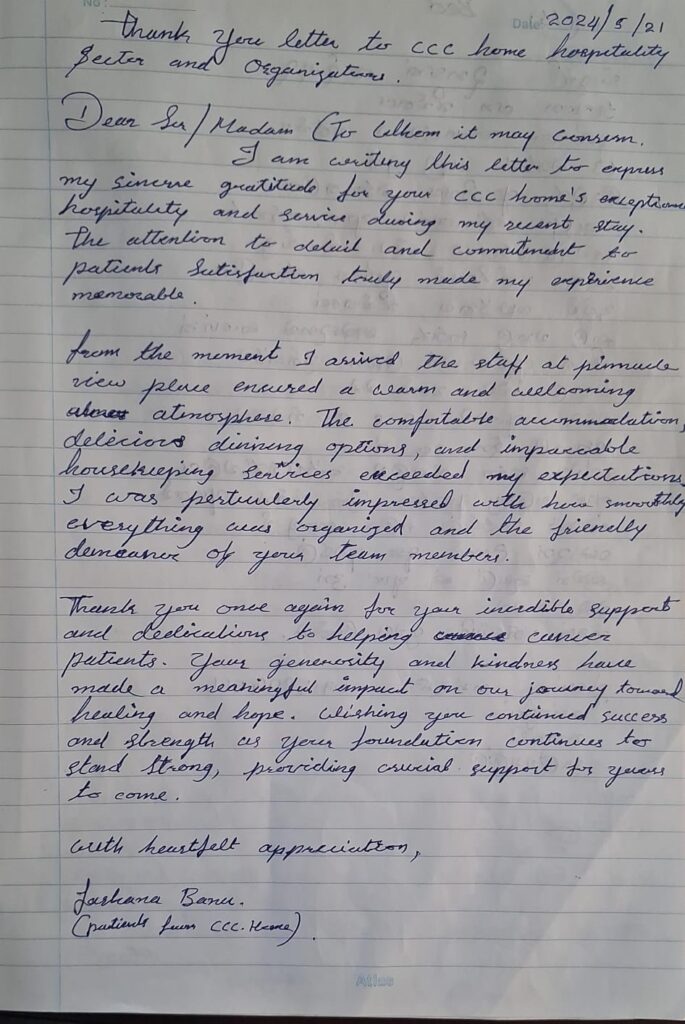 No:
Date: 2024/5/21
Thank you letter to CCC home hospitality
Sector and Organizations.
Dear Sir/Madam (To Whom it may consern.
I am writing this letter to express
my sincere gratitude for your CCC home's exceptional
hospitality and service during my recent stay.
The attention to detail and commitment to
patients Satisfaction truly made my experience
memorable.
from the moment I arrived the staff at pinnacle
view place ensured a warm and welcoming
atmosphere. The comfortable accommodation,
delecious dinining options, and impaccable
housekeeping services exceeded my expectations.
I was perticularly impressed with how smoothly
everything was organized and the friendly
demeanor of your team members.
Thank you once again for your incredible support
and dedications to helping cancer
patients. Your generosity and kindness have
made a meaningful impact on our journey toward
healing and hope. Wishing you continued success
and strength as your foundation continues to
stand strong, providing crucial support for years
to come.
with heartfelt appreciation,
Banu.
(patients from CCC-Home).
Atlas